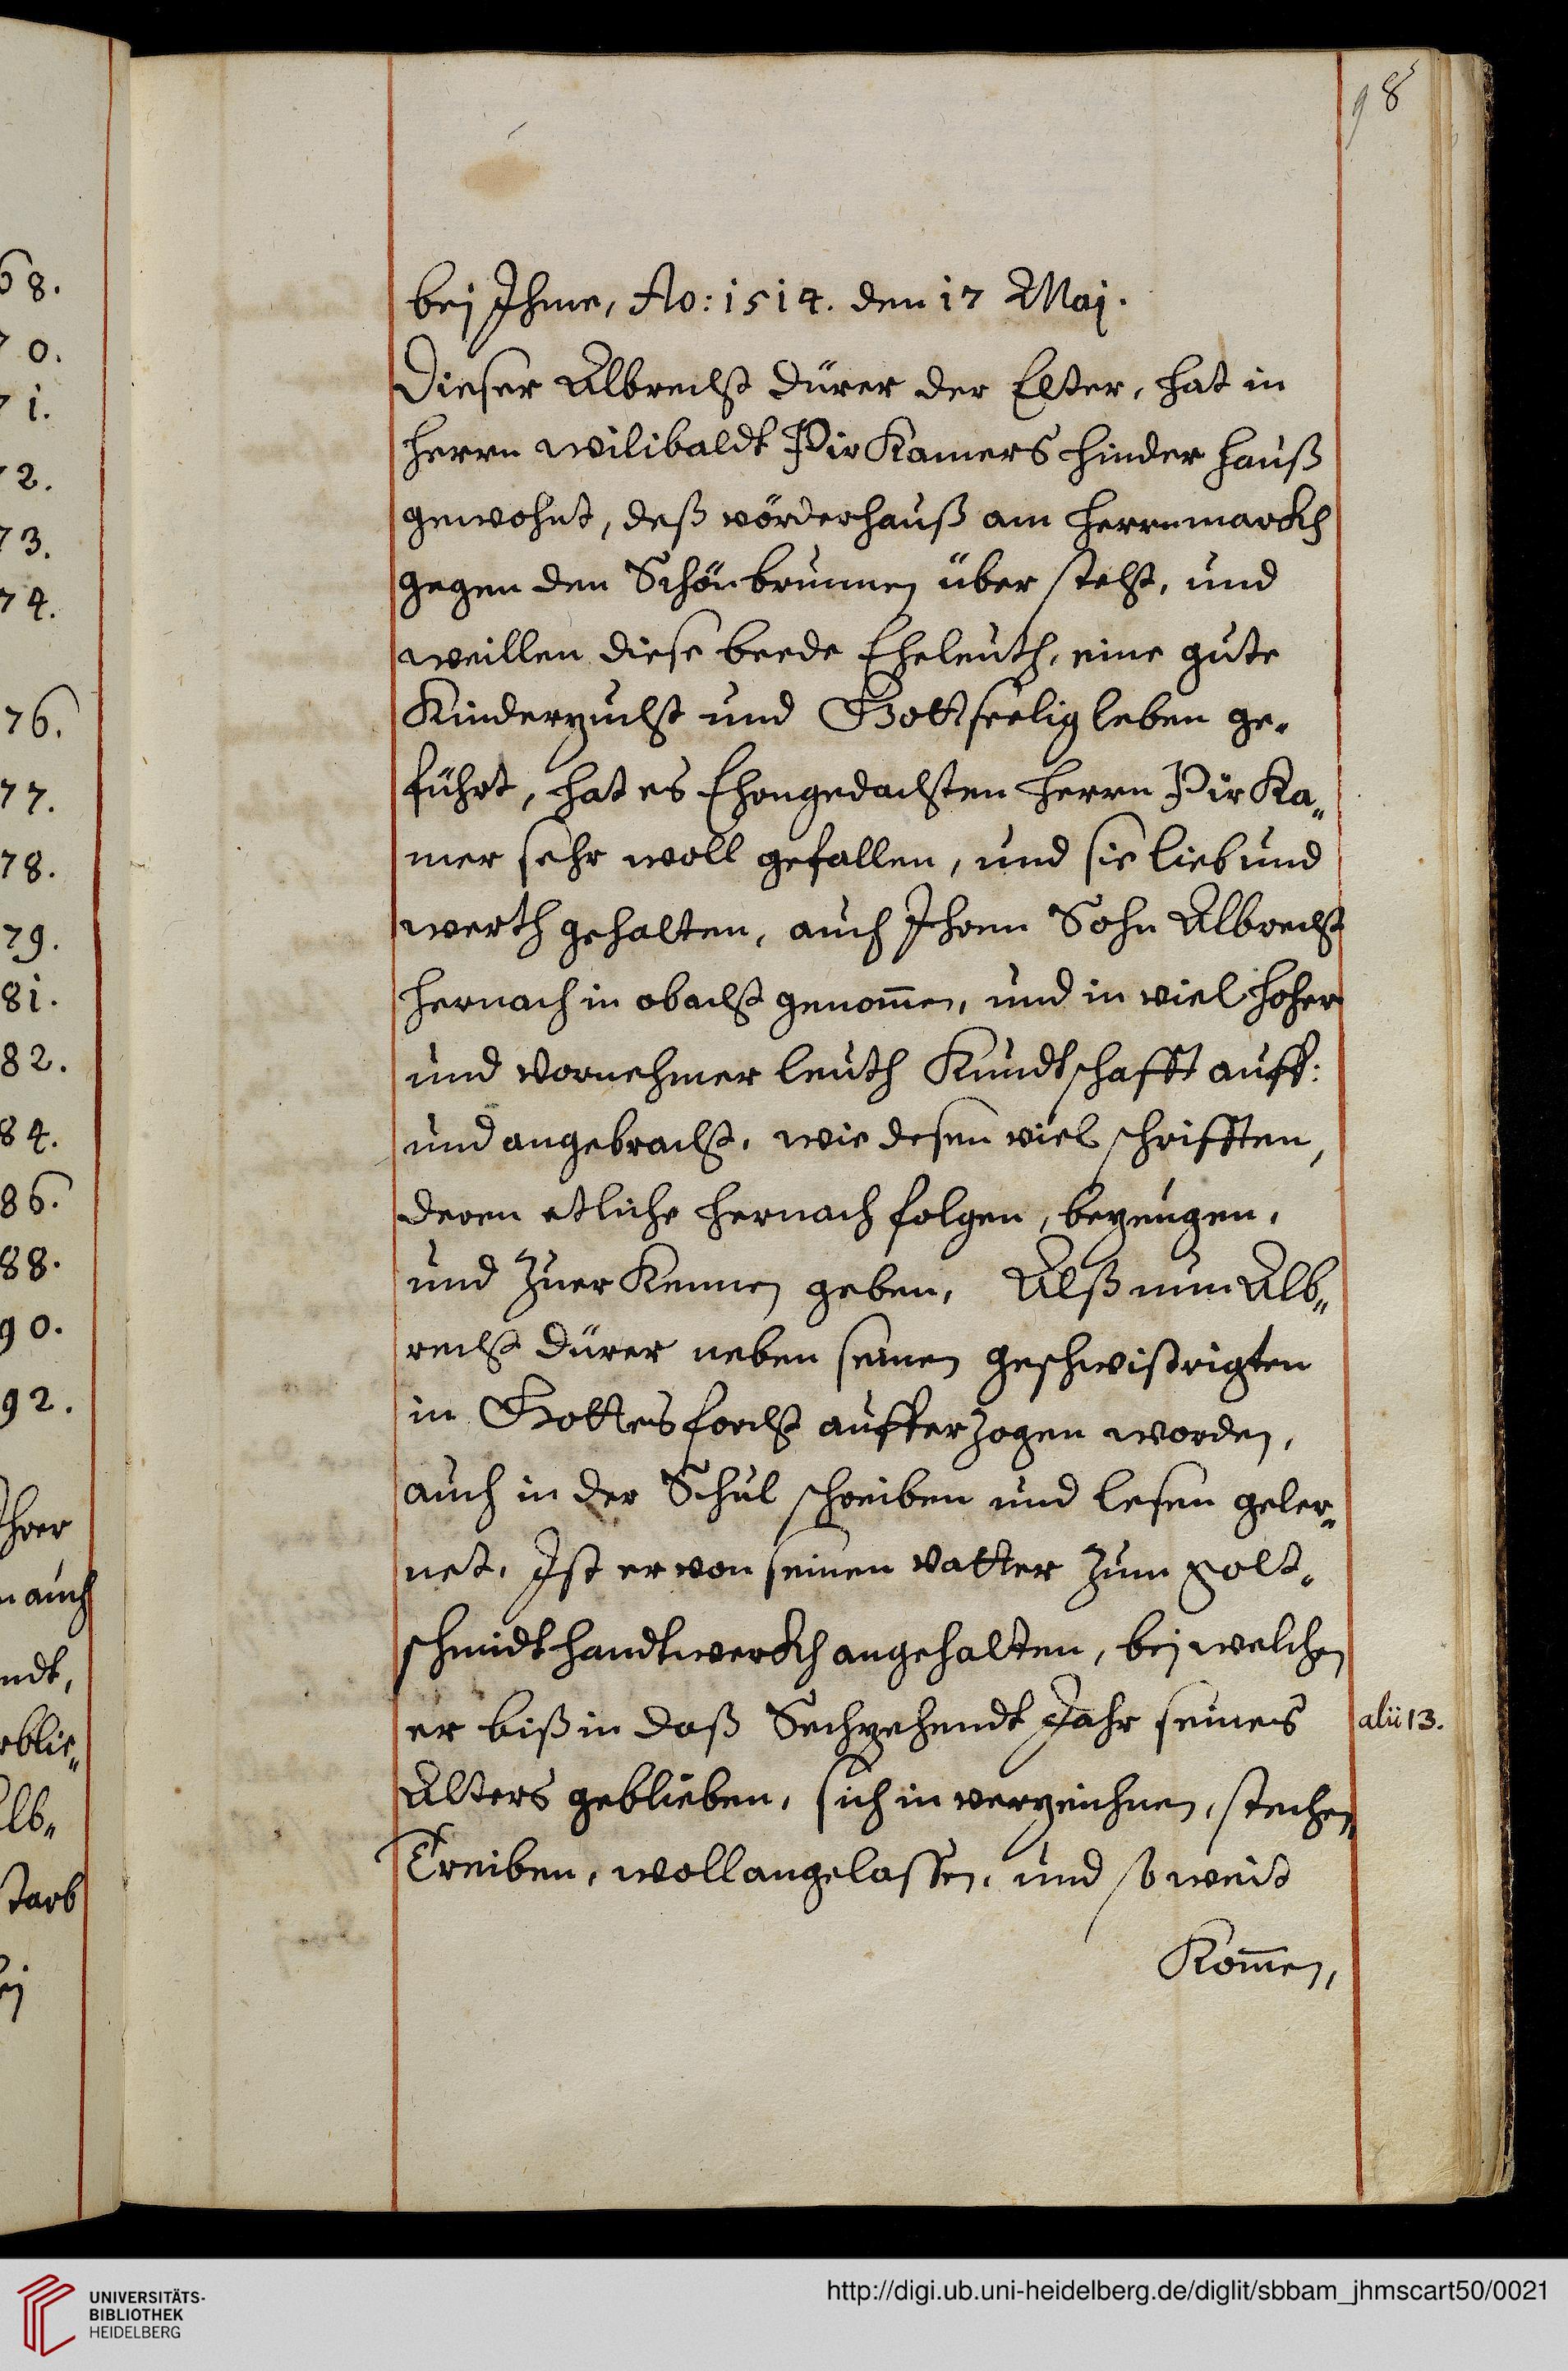 98
bej Ihme, Ao: 1514. den 17 Maj.
Dieser Albrecht Dürer der Elter, hat in
Herrn Wilibaldt Pirkamers hinder hauß
gewohnt, deß vörderhauß am Herrnmarckh
gegen den Schönbrunnen über steht, und
weillen diese beede Eheleuth, eine gute
Kinderzucht und Gottseelig leben ge-
führt, hat es Ehrngedachten Herrn Pirka„
mer sehr woll gefallen, und sie lieb und
werth gehalten, auch Ihren Sohn Albrecht
hernach in obacht genom̄en, und in viel hoher
und vornehmer leuth Kundtschafft auff:
und angebracht, wie desen viel schrifften,
deren etliche hernach folgen, bezeugen,
und zuerkennen geben, Alß nun Alb„
recht Dürer neben seinen geschwistrigten
in Gottesforcht aufferzogen worden,
auch in der Schul schreiben und lesen geler„
net, Ist er von seinen Vatter zum Golt-
schmidt handtwerckh angehalten, bej welchen
er biß in daß Sechzehendt Jahr seines
alii 13.
Alters geblieben, sich in verzeichnen, stechen,
Treiben, woll angelassen, und so weit
Kom̄en,
68.
70.
71.
72.
73.
74.
76.
77.
78.
79.
81.
82.
84.
86.
88.
90.
92.
auch
ndt,
blie„
lb„
starb
UNIVERSITÄTS-
BIBLIOTHEK
HEIDELBERG
http://digi.ub.uni-heidelberg.de/diglit/sbbam_jhmscart50/0021